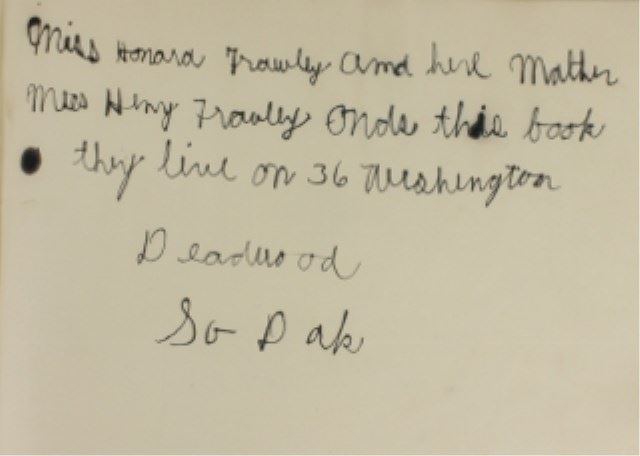 Miss Honard Frawley and here Mather
Mess Heny Frawley Onds this book
they live on 36 Weshington
Deadwood
So Dak